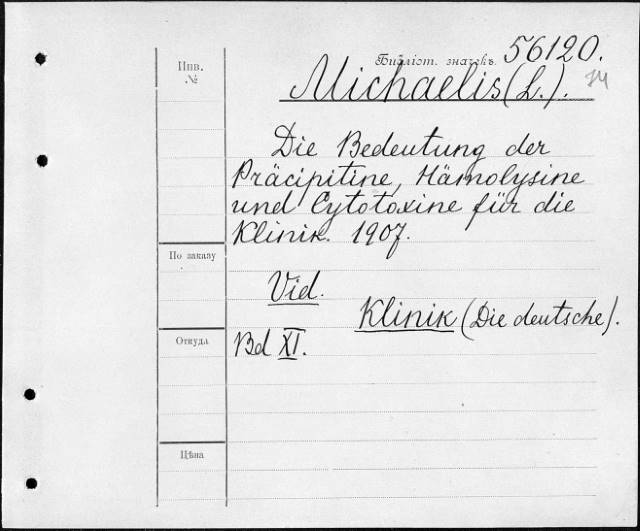 Инв. №
Библіот. значекъ 56120.
Michaelis (L.).
Die Bedeutung der
Präcipitine, Hämolysine
und Cytotoxine für die
Klinik. 1907.
По заказу
Vid.
Klinik (Die deutsche).
Откуда
Bd XI.
Цѣна